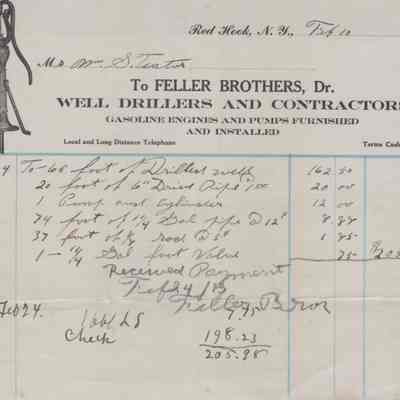 Red Hook, N. Y., Feb 10
M Wm S. Teator
To FELLER BROTHERS, Dr.
WELL DRILLERS AND CONTRACTORS
GASOLINE ENGINES AND PUMPS FURNISHED
AND INSTALLED
Local and Long Distance Telephone Terms Cash
To- 65 foot of Drilled well 162 50
20 foot of 6" Drive Pipe 1.00 20 00
1 Pump and cylinder 12 00
74 foot of 1 1/4 Gal pipe @ 12¢ 8 88
37 foot of rod @ 5¢ 1 85
1 - 1 1/4 Gal foot Valve 75
Received Payment
Feb 24/13
Feller Bros
Feb 24. 7.75
Check 198.23
205.98